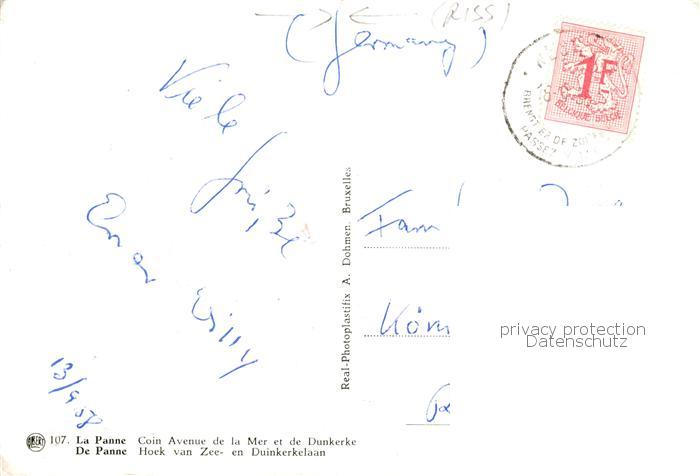 (RISS)
(Germany)
1F
BELGIQUE-BELGIE
Viele
Grüße
Euer
Willy
Fam
privacy protection
Datenschutz
Real-Photoplastifix A. Dohmen, Bruxelles
107. La Panne Coin Avenue de la Mer et de Dunkerke
De Panne Hoek van Zee- en Duinkerkelaan